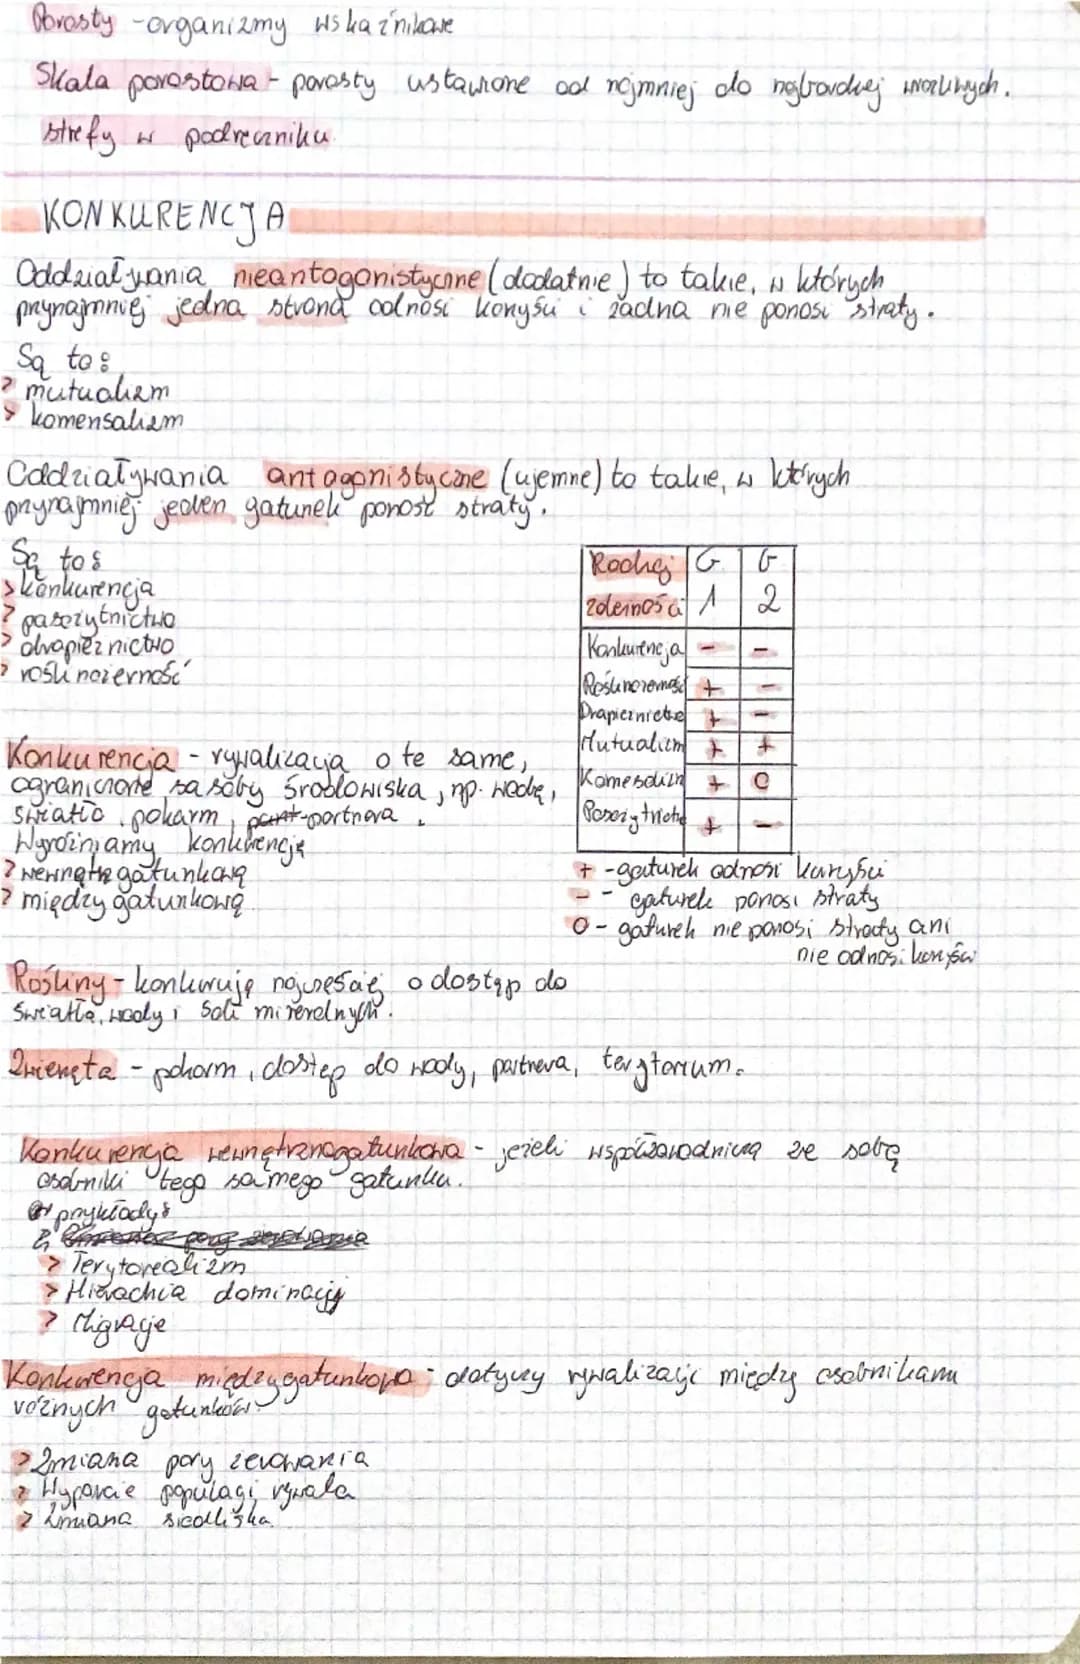 Porosty - organizmy wskaźnikowe
Skala porostowa - porosty ustawione od najmniej do najbardziej wrażliwych.
strefy w podręczniku.
KONKURENCJA
Oddziaływania nieantogonistyczne (dodatnie) to takie, w których
przynajmniej jedna strona odnosi korzyści i żadna nie ponosi straty.
Są to:
> mutualizm
> komensalizm
Oddziaływania antagonistyczne (ujemne) to takie, w których
przynajmniej jeden gatunek ponosi straty.
Są to:
> konkurencja
> pasożytnictwo
> drapieżnictwo
> roślinożerność
Rodzaj G G
zależności 1 2
Konkurencja - -
Roślinożerność + -
Drapieżnictwo + -
Mutualizm + +
Komesalizm + 0
Pasożytnictwo + -
+ - gatunek odnosi korzyści
- - gatunek ponosi straty
0 - gatunek nie ponosi straty ani
nie odnosi korzyści
Konkurencja - rywalizacja o te same,
ograniczone zasoby środowiska, np. wodę,
światło, pokarm, partnera.
Wyróżniamy konkurencję
> wewnątrzgatunkową
> międzygatunkową
Rośliny - konkurują najczęściej o dostęp do
światła, wody i soli mineralnych.
Zwierzęta - pokarm, dostęp do wody, partnera, terytorium.
Konkurencja wewnętrznogatunkowa - jeżeli współzawodniczą ze sobą
osobniki tego samego gatunku.
przykłady:
> Terytorealizm
> Hierachia dominacji
> Migracje
Konkurencja międzygatunkowa - dotyczy rywalizacji między osobnikami
różnych gatunków.
> Zmiana pory żerowania
> Wyparcie populacji rywala
> Zmiana siedliska